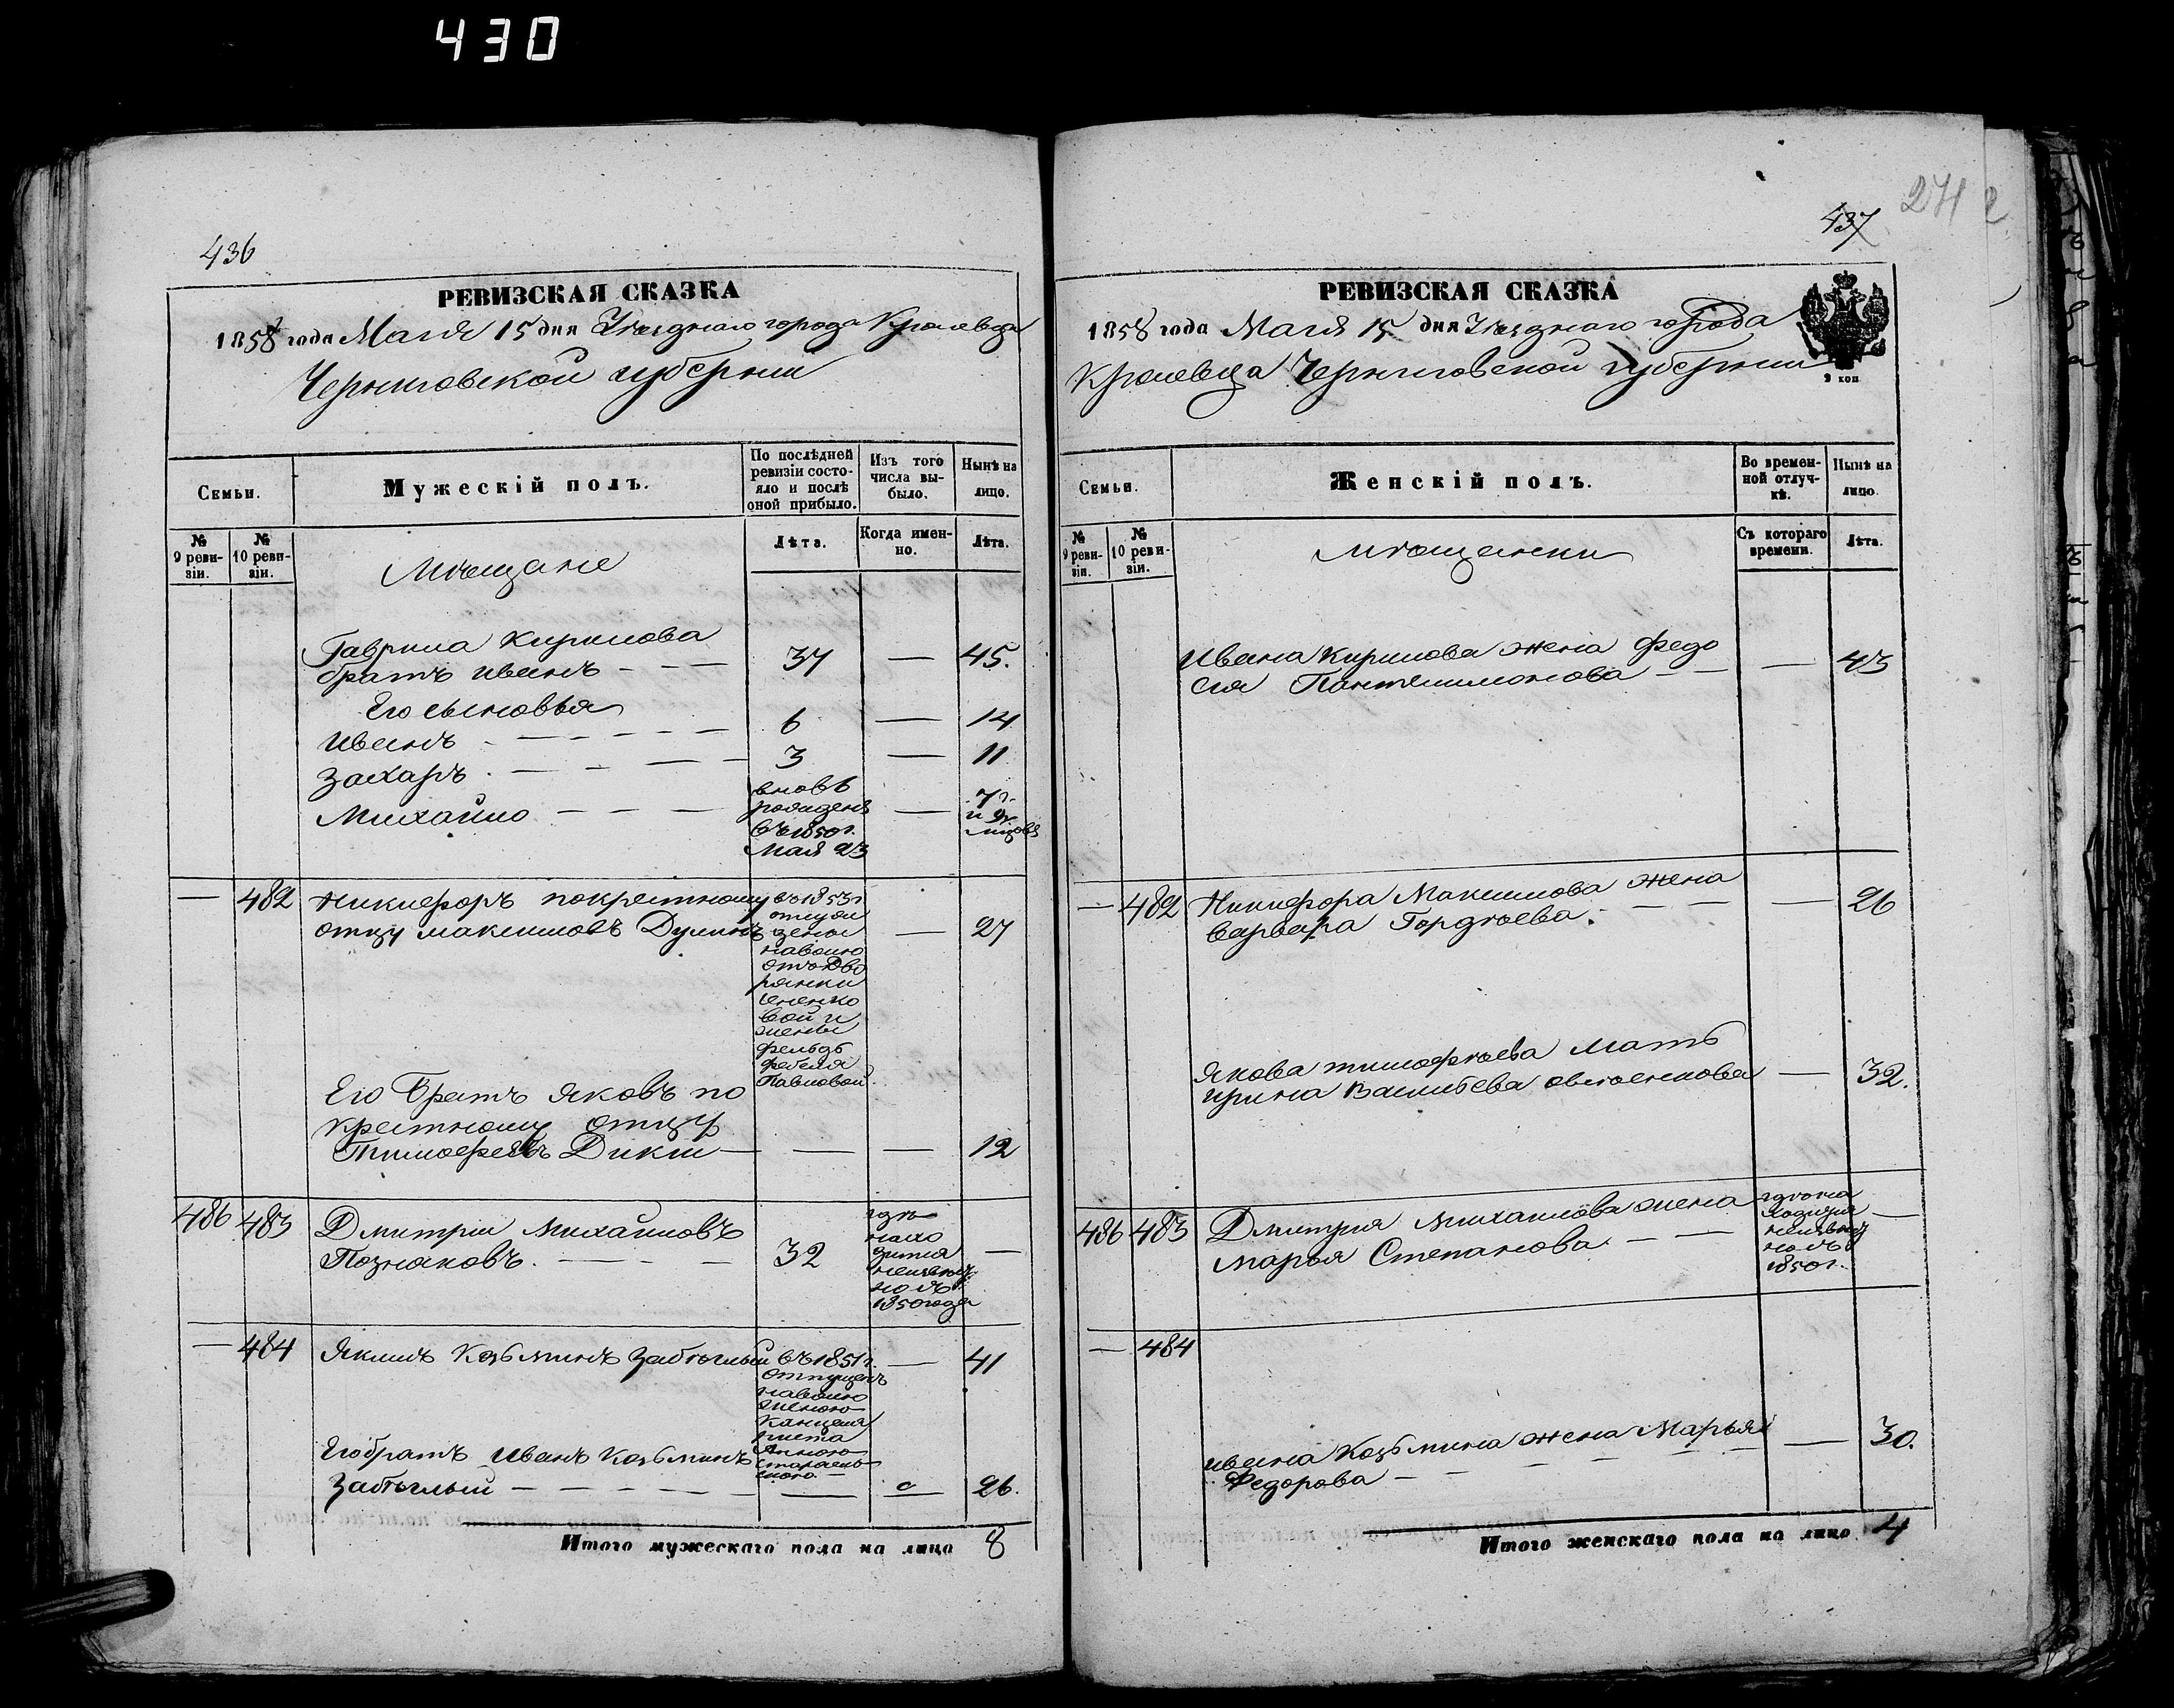 430
436
РЕВИЗСКАЯ СКАЗКА
1858 года Маія 15 дня Уѣзднаго города Кролевца
Черниговской губерніи
Семьи.
Мужескій полъ.
По послѣдней ревизіи состояло и послѣ оной прибыло.
Изъ того числа выбыло.
Нынѣ на лицо.
№ 9 ревизіи.
№ 10 ревизіи.
Мѣщане
Лѣта.
Когда именно.
Лѣта.
Гаврила Кирилова
братъ Иванъ - - - 37 — 45.
Его сыновья
Иванъ - - - - - 6 — 14
Захаръ - - - - 3 — 11
Михайло - - -
вновь
рожденъ
въ 1850 г.
Мая 23
—
7 г.
и
— 482 Никифоръ по крестному
отцу Максимовъ — 27
въ 1853 г
на волю
Его Братъ Яковъ по
крестному отцу
Тимофеевъ Дикий — — — 12
486 483 Дмитрий Михайловъ
Позняковъ - - - 32 —
где
нахо
дится
неизвест
но съ
1850 года
— 484 Якимъ Козьминъ Забѣглый — 41
въ 1851 г.
отпущенъ
на волю
женою
Канцеля
риста
Его братъ Иванъ Козьминъ
Забѣглый - - - - - — — 26.
Итого мужескаго пола на лицо 8
437
РЕВИЗСКАЯ СКАЗКА
1858 года Маія 15 дня Уѣзднаго города
Кролевца Черниговской губерніи
Семьи.
Женскій полъ.
Во временной отлучкѣ.
Нынѣ на лицо.
№ 9 ревизіи.
№ 10 ревизіи.
Мѣщанки
Съ котораго времени.
Лѣта.
Ивана Кирилова жена Федо
сия Пантелимонова - - — 43
— 482 Никифора Максимова жена
Варвара Гордѣева - - - — 26
Якова Тимофѣева мать
Ирина Васильева — 32.
486 483 Дмитрия Михайлова жена
Марья Степанова - - —
— 484
Ивана Козьмина жена Марья
Федорова - - - - — 30.
Итого женскаго пола на лицо 4